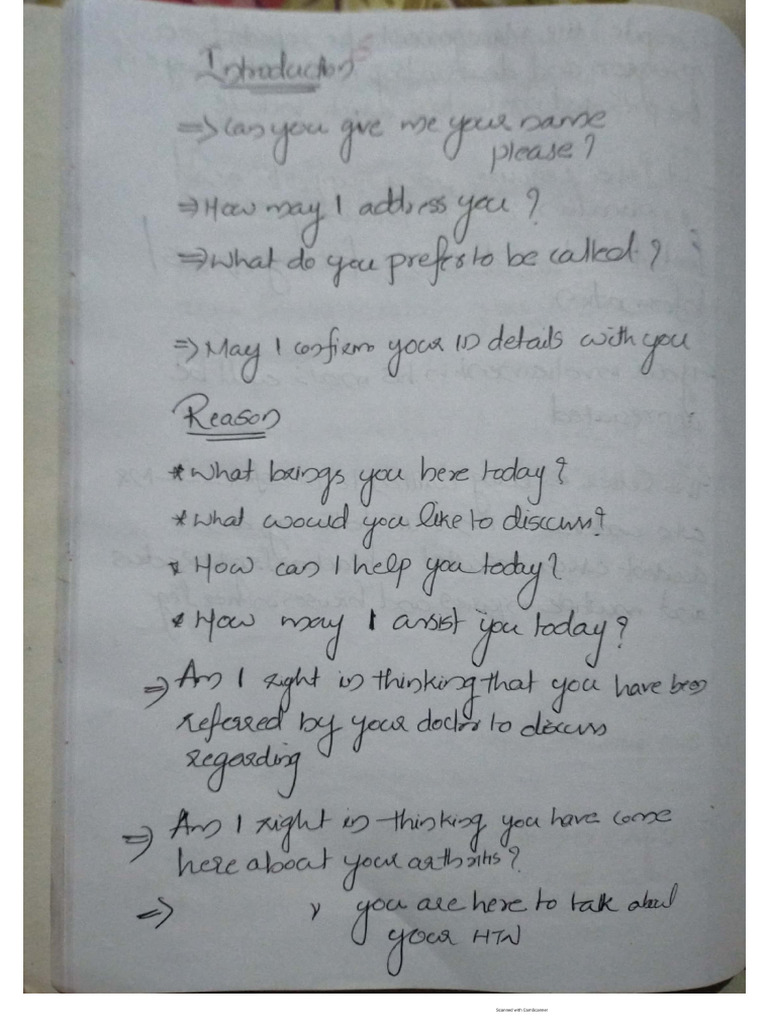 Introduction
⇒ Can you give me your name
please?
⇒ How may I address you?
⇒ What do you prefer to be called?
⇒ May I confirm your ID details with you
Reason
* What brings you here today?
* What would you like to discuss?
* How can I help you today?
* How may I assist you today?
⇒ Am I right in thinking that you have been
referred by your doctor to discuss
regarding
⇒ Am I right in thinking you have come
here about your arthritis?
⇒ you are here to talk about
your HTN
Scanned with CamScanner